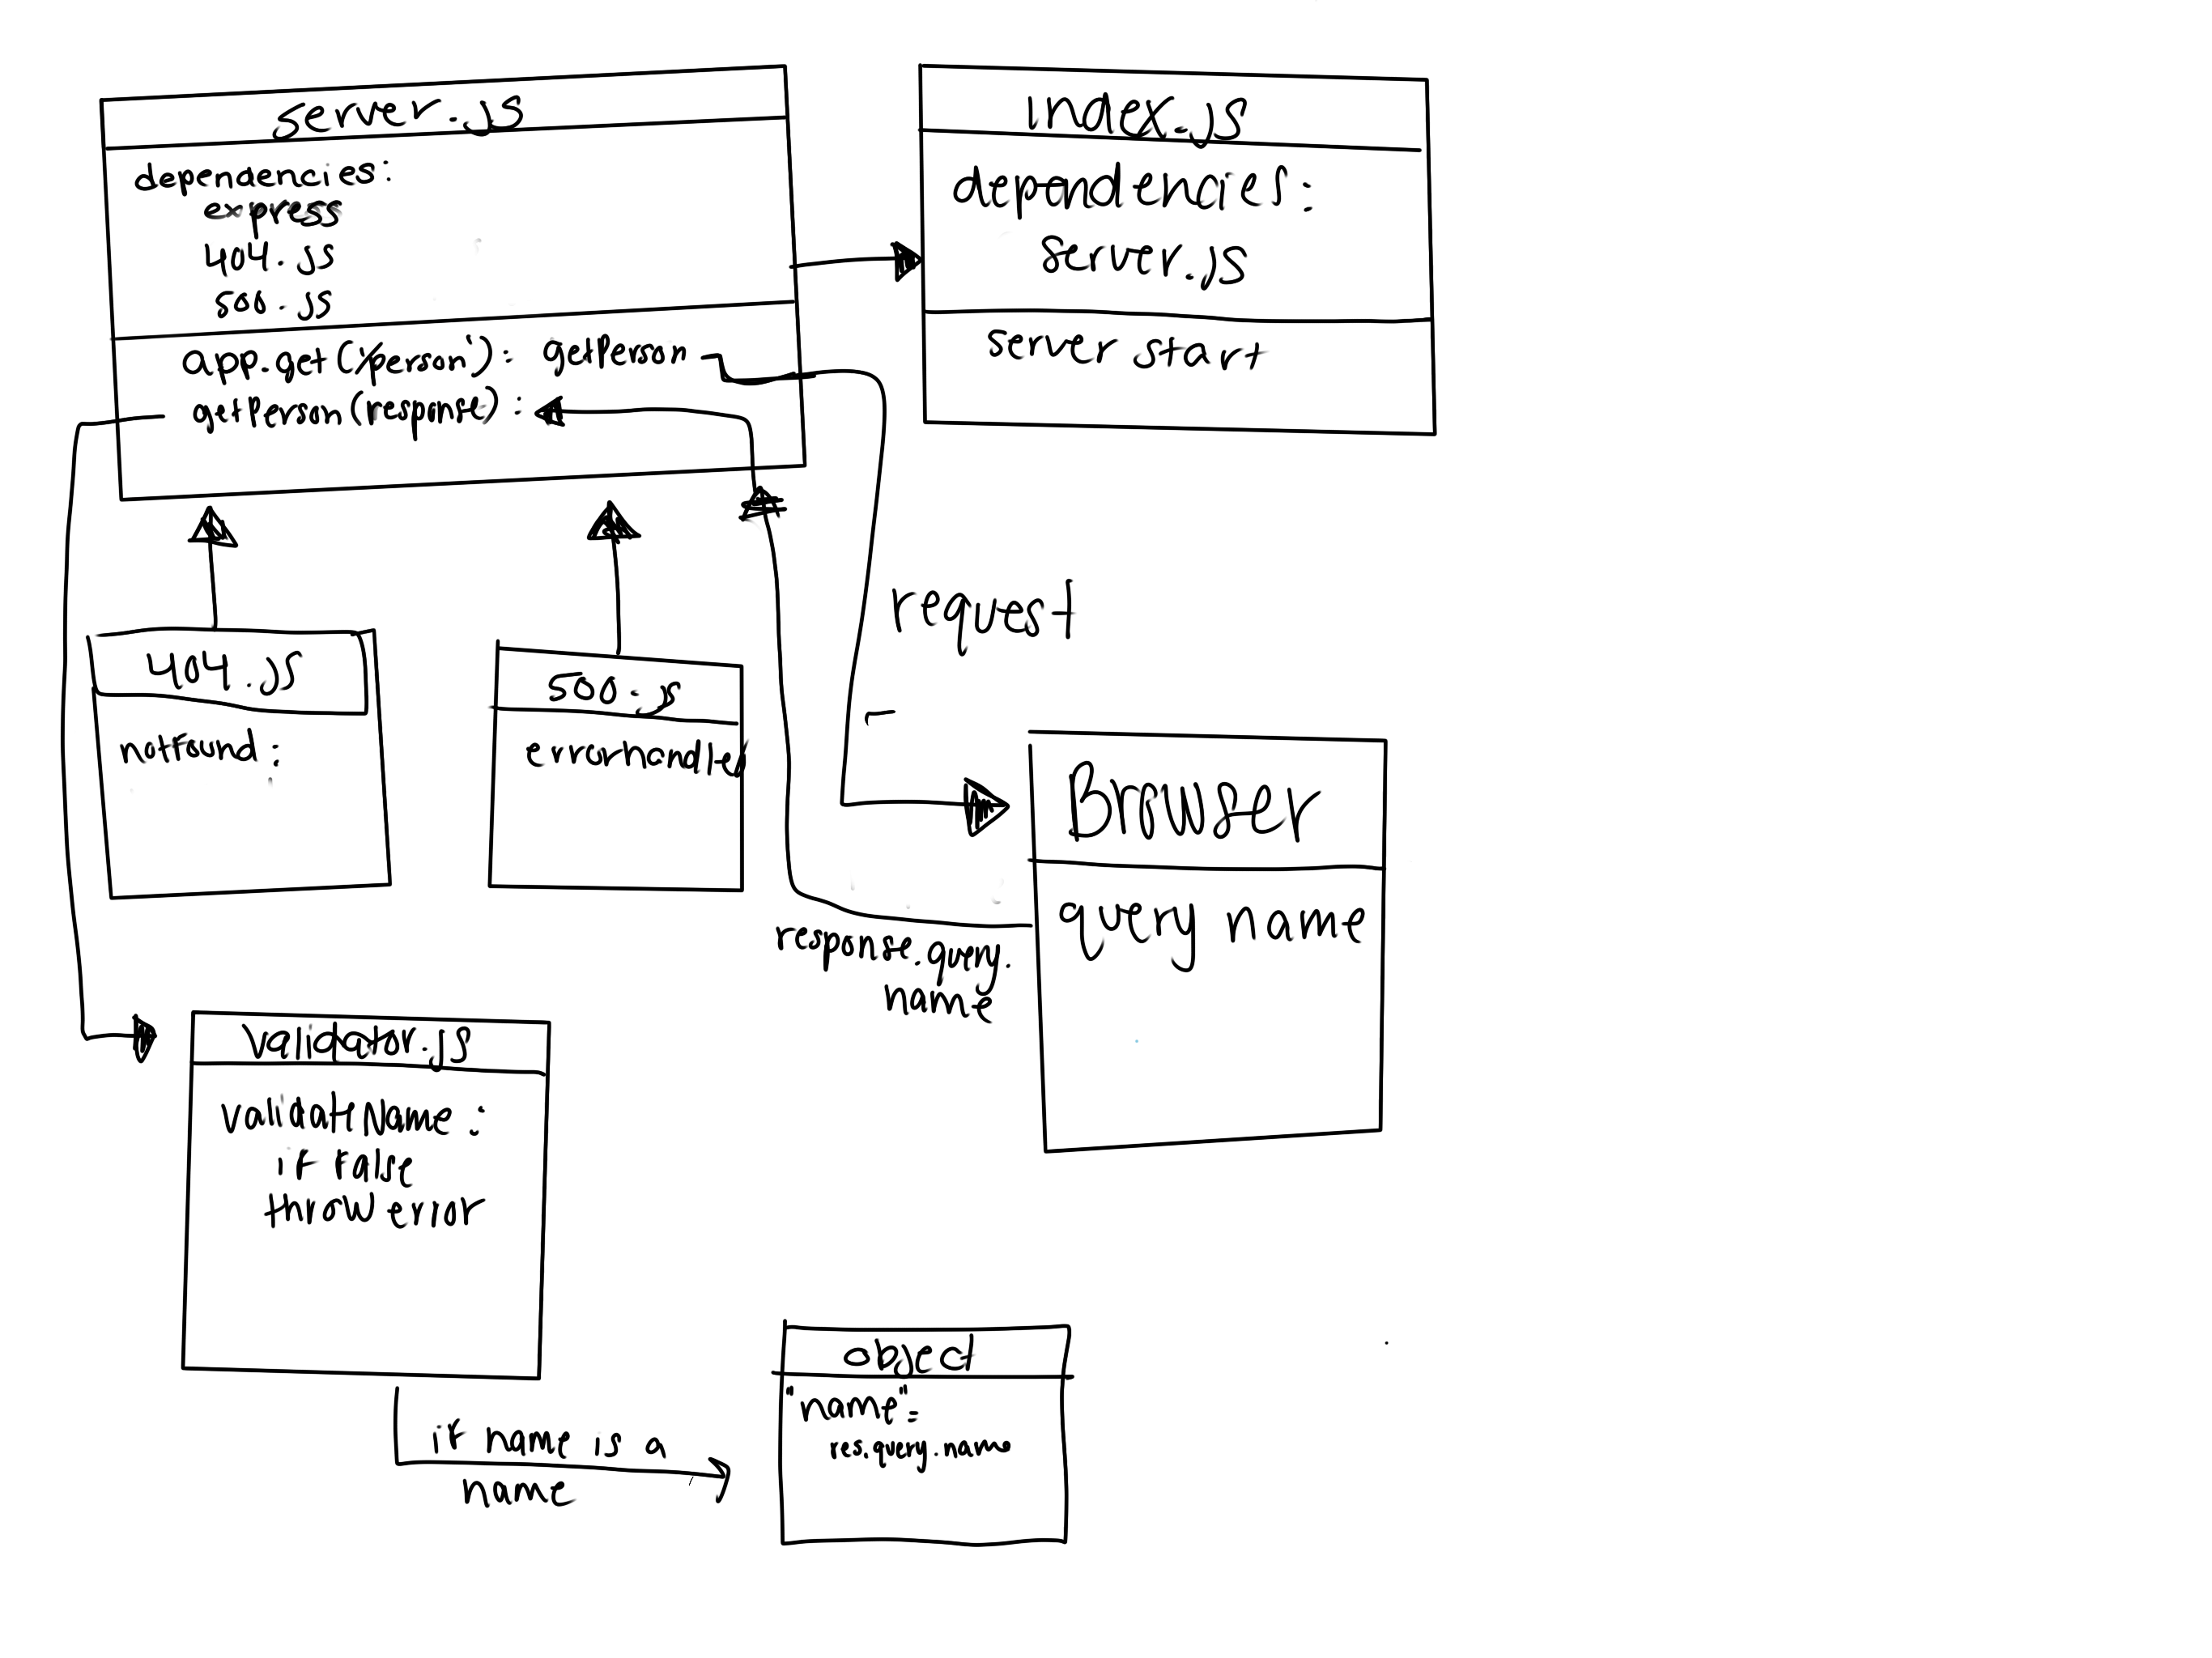 server.js
dependencies:
express
404.js
500.js
app.get('/person'): getPerson
getPerson(response):
index.js
dependencies:
server.js
server start
404.js
notFound:
500.js
errorhandler
request
Browser
query name
response.query.
name
validator.js
validateName:
if false
throw error
if name is a
name
object
"name":
res.query.name